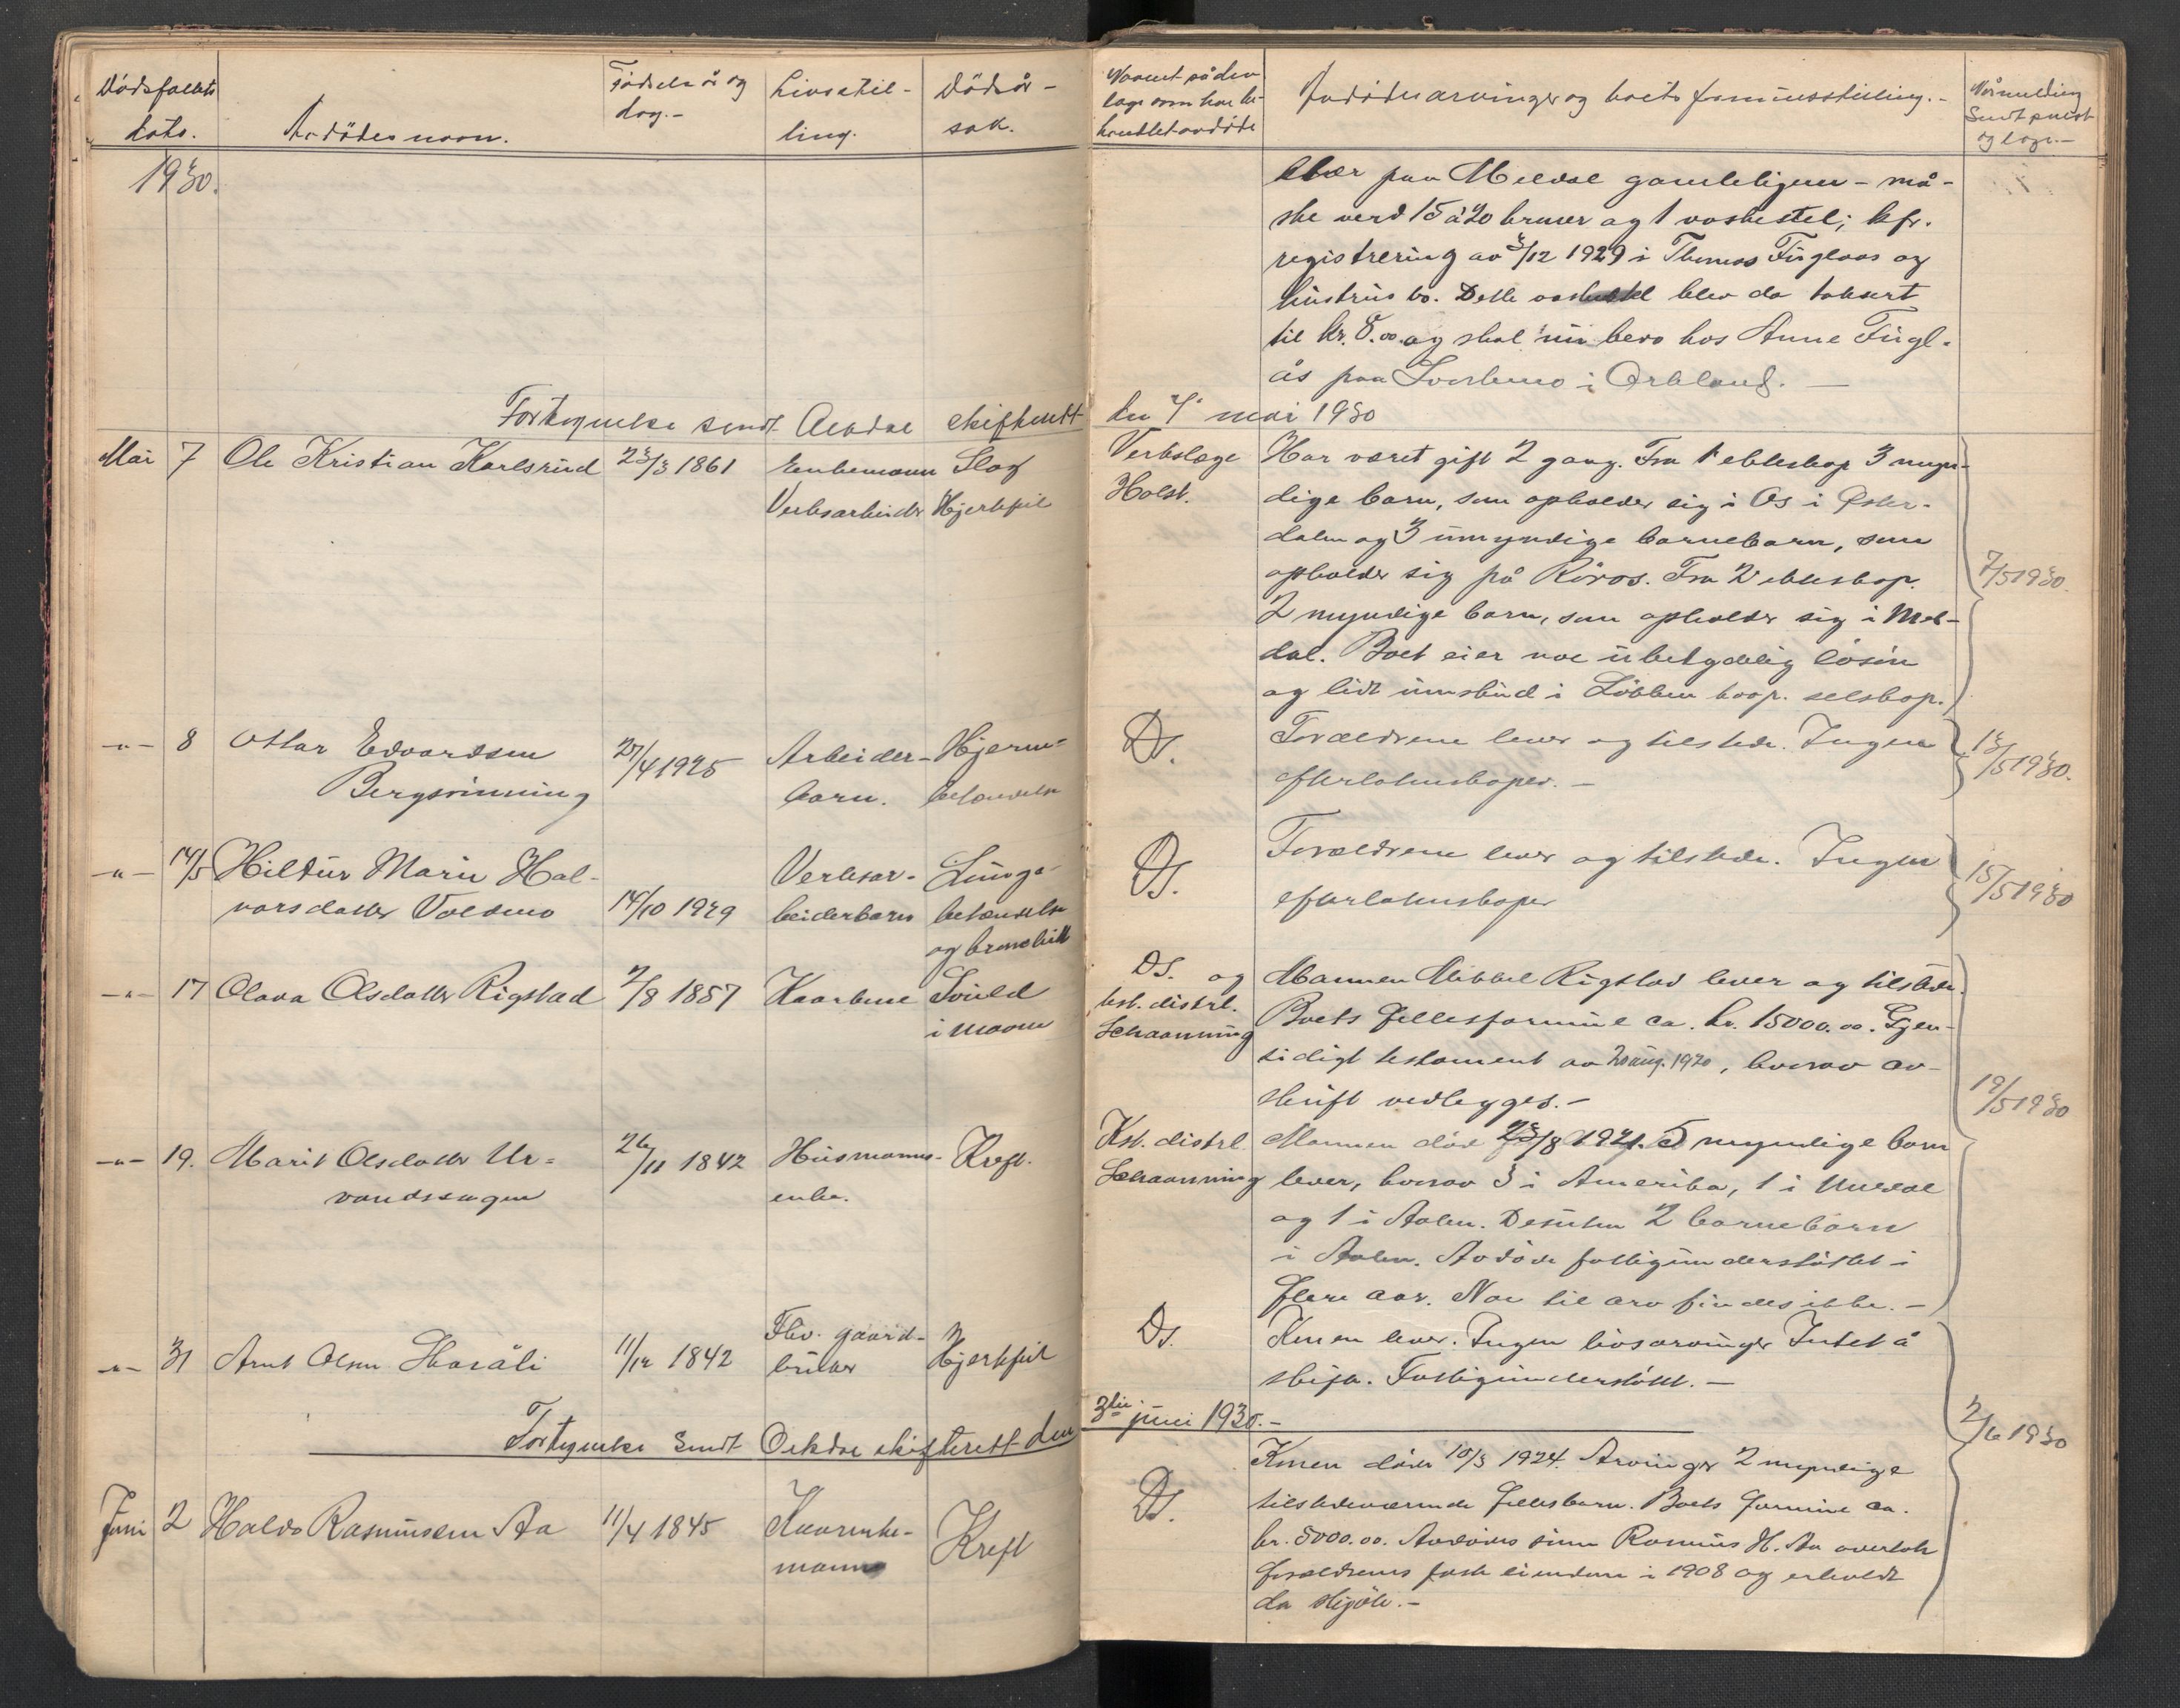 Dødsfallets
dato.
Avdødes navn.
Fødselsår og
dag.-
Livsstil-
ling.
Dødsår-
sak.
Navnet på den
læge som har be-
handlet avdøde
Avdødes arvinger og boets formuesstilling.-
Når melding
Sendt prest
og læge.-
1930.
klær paa Meldal gamleligem - må-
ske verd 15 à 20 kroner og 1 vaskestel; kfr.
registrering av 3/12 1929 i Thomas Fuglaas og
hustrus bo. Dette vaskestel blev da taksert
til kr. 8.00 og skal nu bero hos Anne Fugl-
ås paa Svorkmo i Orkland. -
Fortegnelse sendt Orkdal skifterett
den 7 mai 1930
Mai 7 Ole Kristian Karlsrud 23/3 1861 Enkemann Slag
Verksarbeider Hjertefeil
Verkslæge
Holst.
Har været gift 2 gang. Fra 1 ekteskap 3 myn-
dige barn, som opholder sig i Os i Øster-
dalen og 3 umyndige barnebarn, som
opholder sig på Røros. Fra 2 ekteskap.
2 myndige barn, som opholder sig i Mel-
dal. Boet eier noe ubetydelig løsøre
og lidt innskud i Løkken koop. selskap.
7/5 1930.
-"- 8 Ottar Edvardsen
Bergsrønning
27/4 1925 Arbeider-
barn.
Hjerne-
betendelse
Ds.
Forældrene lever og tilstede. Ingen
efterlatenskaper. -
13/5 1930.
-"- 14/5 Hildur Marie Hal-
varsdatter Voldmo 14/10 1929
Verksar-
beiderbarn
Lunge-
betendelse
og bronchitt
Ds.
Forældrene lever og tilstede. Ingen
efterlatenskaper
15/5 1930
-"- 17 Olava Olsdatter Rigstad 2/8 1857 Kaarkone Svuld
i maven
Ds. og
kst. distrl.
Schaanning
Mannen Mikkel Rigstad lever og tilstede.
Boets fellesformue ca. kr. 15000.00. Gjen-
sidigt testament av 20 aug. 1920, hvorav av-
skrift vedlegges. -
19/5 1930
-"- 19. Marit Olsdatter Ur-
vandssagen
26/11 1842 Husmanns-
enke.
Kreft.
Kst. distrl.
Schaanning
Mannen død 23/8 1921. 5 myndige barn
lever, hvorav 3 i Amerika, 1 i Meldal
og 1 i Aalen. Desuten 2 barnebarn
i Aalen. Avdøde fattigunderstøttet i
flere aar. Noe til arv findes ikke. -
-"- 31 Arnt Olsen Skaråli 11/12 1842
Fhv. gaard-
bruker Hjertefeil
Ds.
Konen lever. Ingen livsarvinger Intet å
skifte. Fattigunderstøttet. -
Fortegnelse sendt Orkdal skifterett den
3die juni 1930. -
2/6 1930
Juni 2 Haldo Rasmussen Aa 11/4 1845 Kaarenke-
mann
Kreft
Ds.
Konen døde 10/3 1924. Arvinger 2 myndige
tilstedeværende fellesbarn. Boets formue ca.
kr. 5000.00. Avdødes sønn Rasmus H. Aa overtok
forældrenes faste eiendom i 1908 og erholdt
da skjøte. -